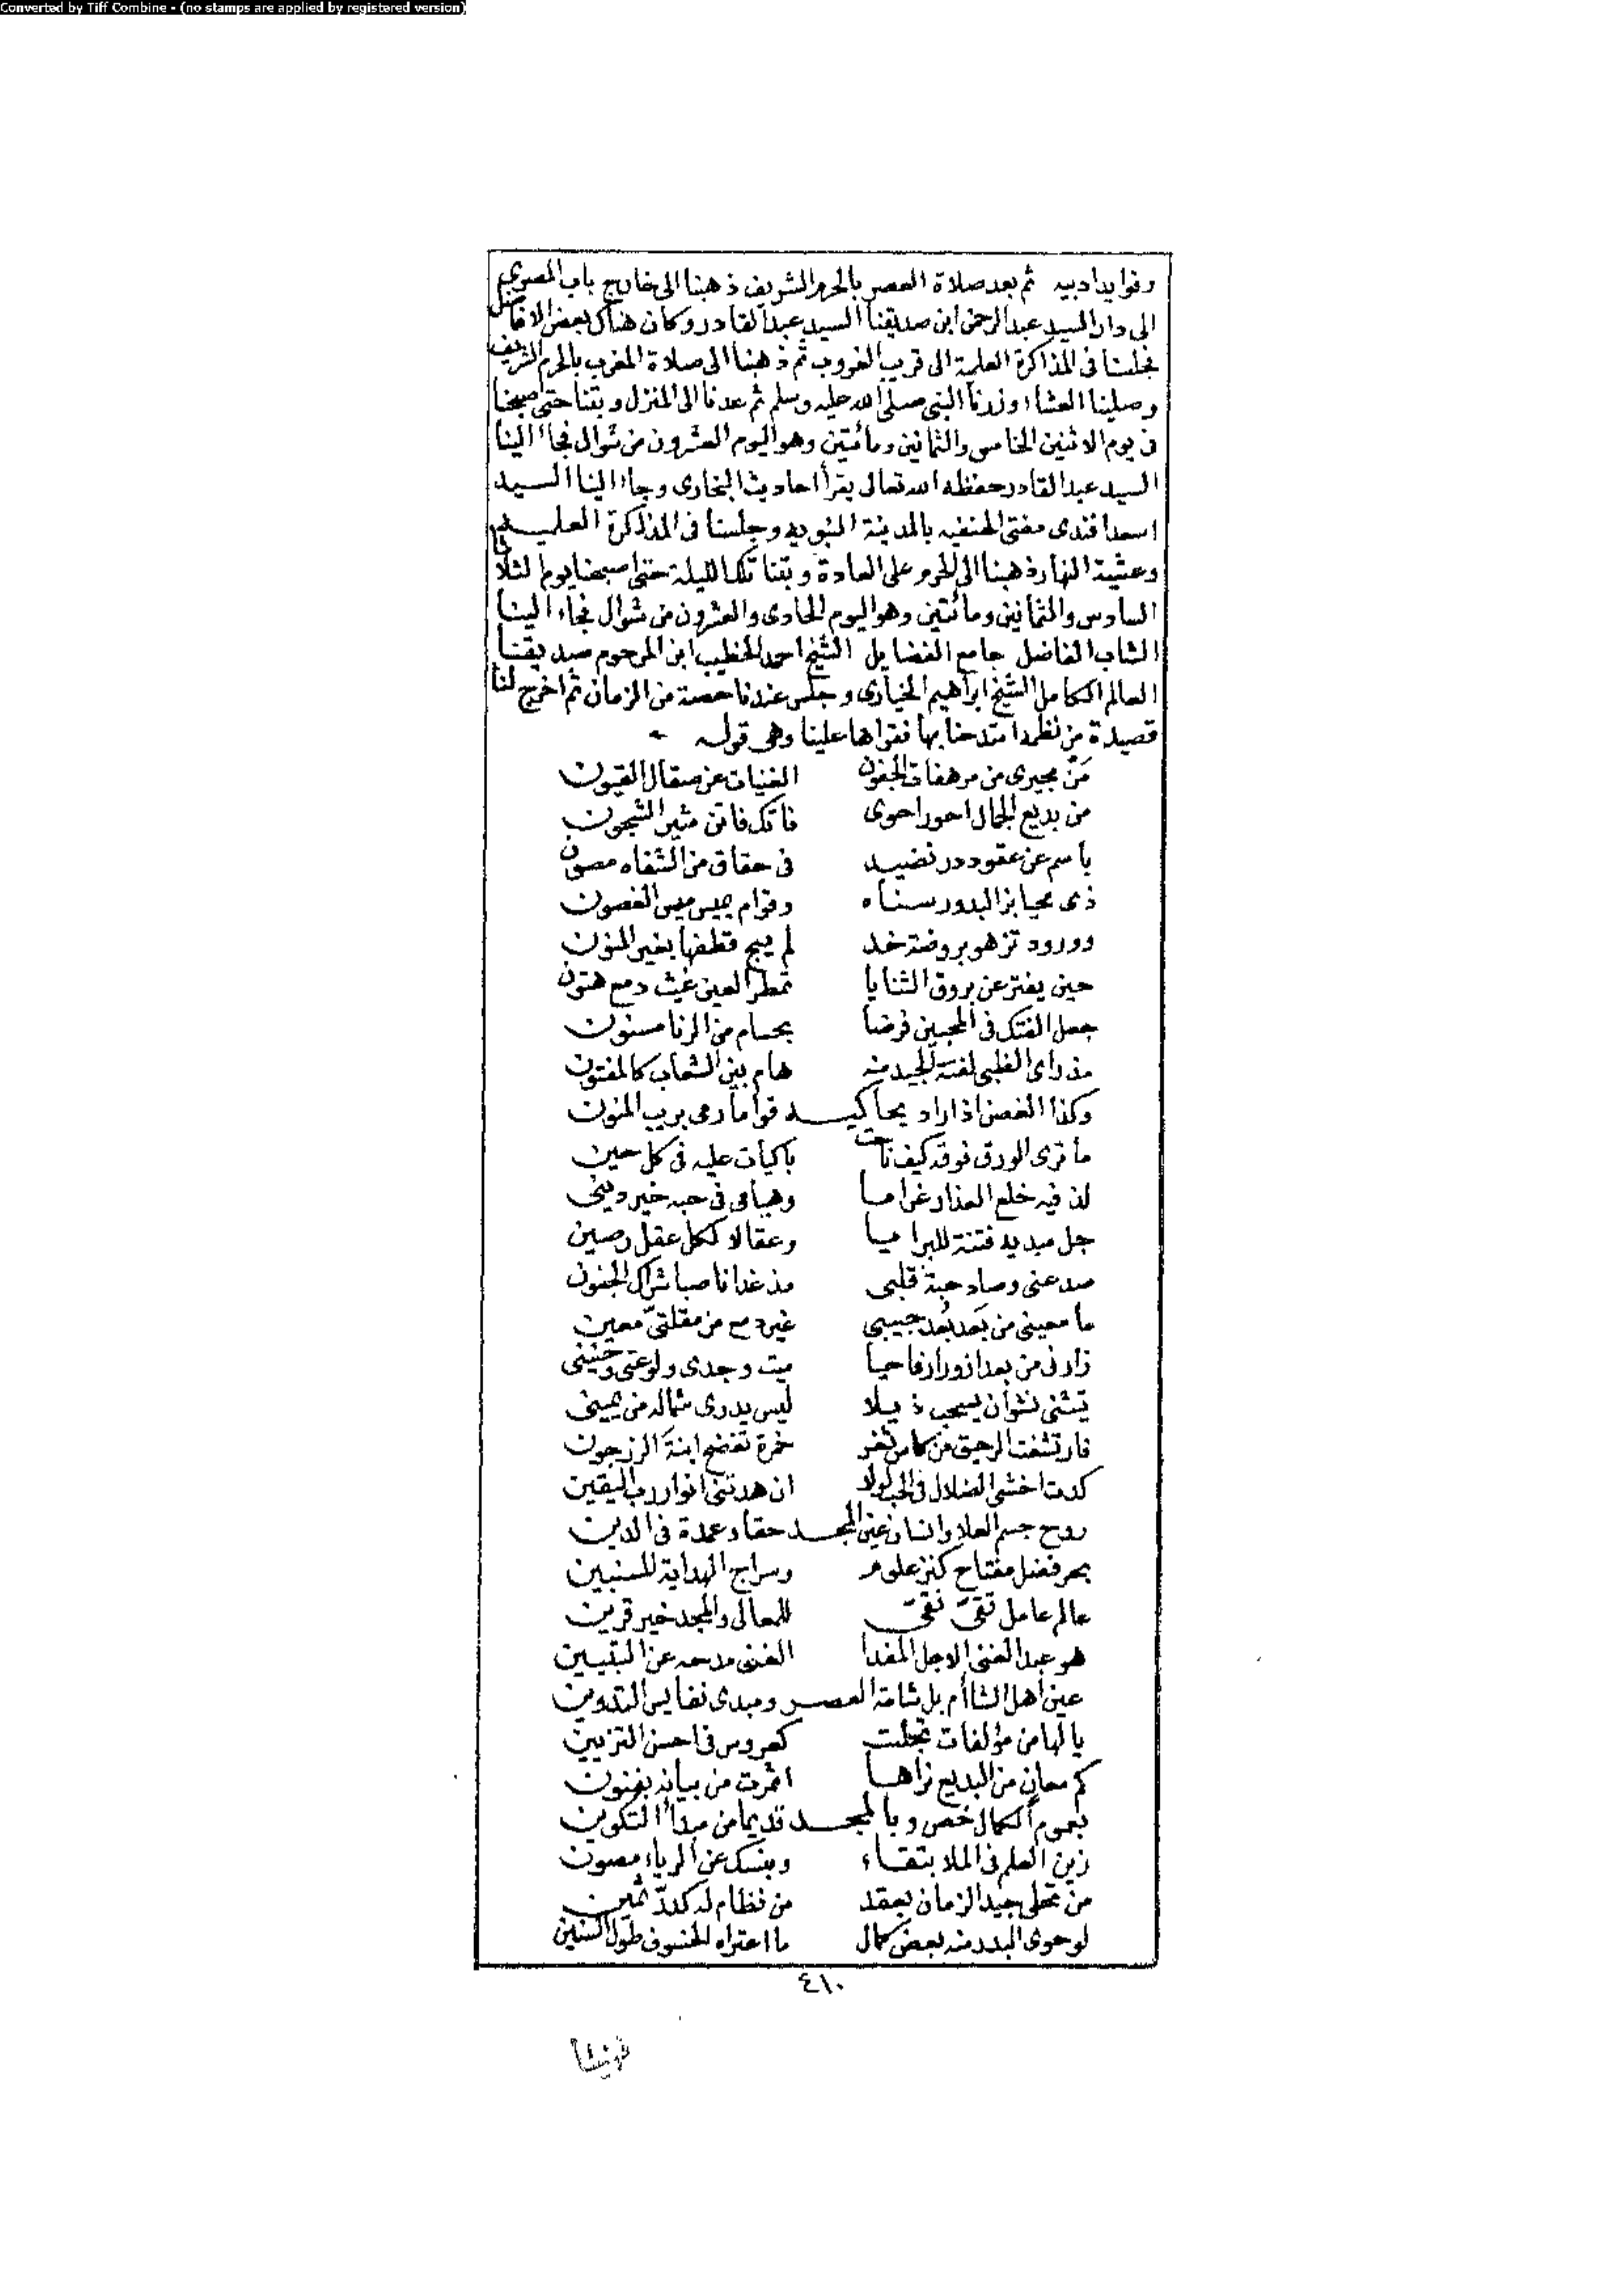 Converted by Tiff Combine - (no stamps are applied by registered version)
وفوايد ادبيه ثم بعد صلاة العصر بالحرم الشريف ذهبنا الى خارج باب المصري
الى دار السيد عبد الرحمن ابن صديقنا السيد عبد القادر وكان هناك بعض الافاضل
فجلسنا فى المذاكرة العلمية الى قريب الغروب ثم ذهبنا الى صلاة المغرب بالحرم الشريف
وصلينا العشاء وزرنا النبي صلى الله عليه وسلم ثم عدنا الى المنزل وبتنا حتى اصبحنا
فى يوم الاثنين الخامس والثمانين ومائتين وهو اليوم العشرون من شوال فجاء الينا
السيد عبد القادر حفظه الله تعالى يقرأ احاديث البخارى وجاء الينا السيد
اسعد افندى مفتى الحنفيه بالمدينة النبويه وجلسنا فى المذاكرة العلميه
وعشية النهار ذهبنا الى الحرم على العادة وبتنا تلك الليلة حتى اصبحنا يوم الثلاثا
السادس والثمانين ومائتين وهو اليوم الحادى والعشرون من شوال فجاء الينا
الشاب الفاضل جامع الفضايل الشيخ احمد الخطيب ابن المرحوم صديقنا
العالم الكامل الشيخ ابراهيم الخيارى وجلس عندنا حصة من الزمان ثم اخرج لنا
قصيدة من نظمه امتدحنا بها فقراها علينا وهى قوله
مَنْ مجيرى من مرهفات الجفون الغنيات عن صقال القيون
من بديع الجمال احور احوى فاتك فاتن مثير الشجون
باسم عن عقود در نضيد فى حقاق من الشفاه مصون
ذى محيا بز البدور سناه وقوام يميس ميس الغصون
وورود تزهو بروضة خد لم يبح قطفها بغير المنون
حين يفتر عن بروق الثنايا تمطر العين غيث دمع هتون
جعل الفتك فى المحبين فرضا بحسام من الرنا مسنون
مذ راى الظبى لفتة الجيد منه هام بين الشعاب كالمفتون
وكذا الغصن اذ اراد يحاكيـــه قواما رمى بريب المنون
ما ترى الورق فوقه كيف ناحت باكيات عليه فى كل حين
لذ فيه خلع العذار غراما وهيامى فى حبه خير دينى
جل مبديه فتنة للبرايا وعقالا لكل عقل رصين
صد عنى وصاد حبة قلبى مذ غدا ناصبا شراك الجفون
ما معينى من بَعد بُعد حبيبى غير دمع من مقلتىّ معين
زارنى من بعد ازورار فاحيا ميت وجدى ولوعتى وحنينى
يتثنى نشوان يسحب ذيلا ليس يدرى شماله من يمينى
فارتشفت الرحيق من كاس ثغر خمرة تفضح ابنةَ الزرجون
كدت اخشى الضلال فى الحب لولا ان هدتنى انوار رب اليقين
روح جسم العلا وانسان عين المجـــد حقا وعمدة فى الدين
بحر فضل مفتاح كنز علوم وسراج الهداية للمنبين
عالم عامل تقىّ نقىّ للمعالى والمجد خير قرين
هو عبد الغنى الاجل المفدا الغنى مدحه عن التبيين
عين اهل الشاأم بل شامة العصـــر ومبدى نفايس التدوين
يا لها من مؤلفات تجلت كعروس فى احسن التزيين
كم معان من البديع نراها اثمرت من بيانه بفنون
بعموم الكمال خص وبالمجـــد قديما من مبدأ التكوين
زين العلم فى الملا بتقاء وبنسك عن الرياء مصون
من تحلى جيد الزمان بعقد من نظام له كدرّ ثمين
لو حوى البدر منه بعض كمال ما اعتراه الخسوف طول السنين
٤١٠